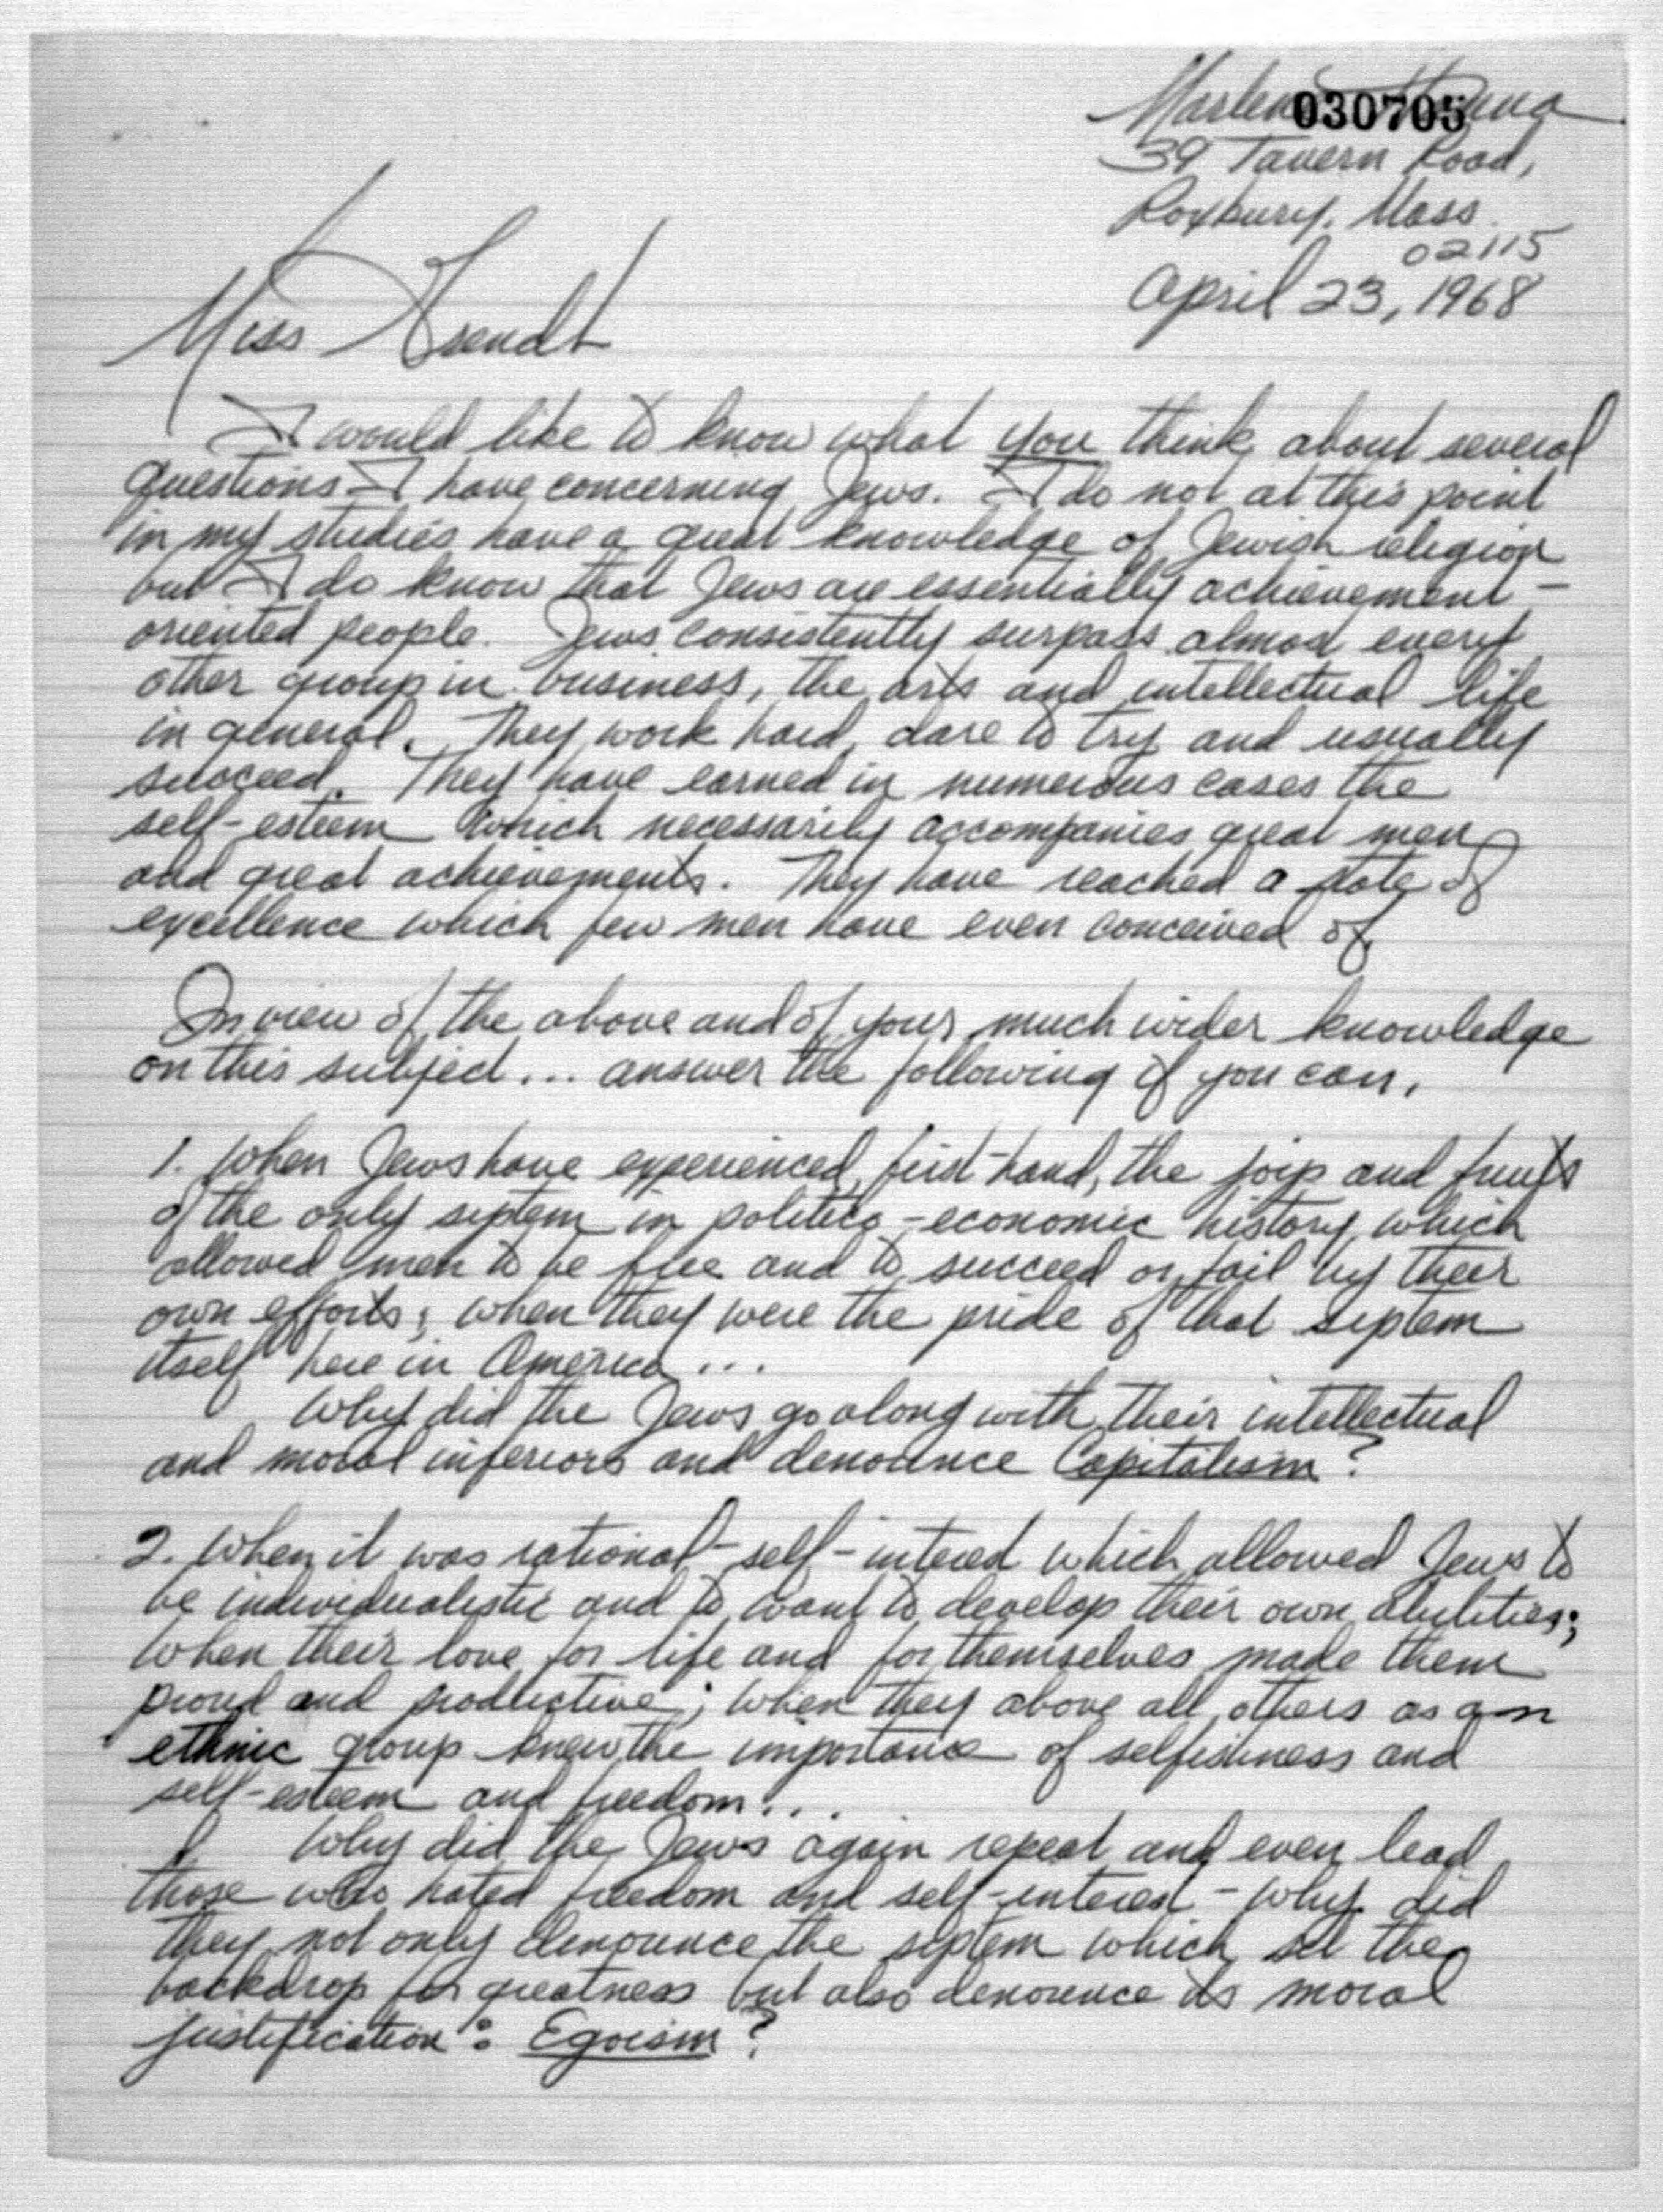 030705
39 Tavern Road,
Roxbury, Mass.
02115
April 23, 1968
Miss Arendt
I would like to know what you think about several
questions I have concerning Jews. I do not at this point
in my studies have a great knowledge of Jewish religion
but I do know that Jews are essentially achievement-
oriented people. Jews consistently surpass almost every
other group in business, the arts and intellectual life
in general. They work hard, dare to try and usually
succeed. They have earned in numerous cases the
self-esteem which necessarily accompanies great men
and great achievements. They have reached a state of
excellence which few men have even conceived of.
In view of the above and of your much wider knowledge
on this subject... answer the following if you can.
1. When Jews have experienced, first-hand, the joys and fruits
of the only system in politico-economic history which
allowed men to be free and to succeed or fail by their
own efforts; when they were the pride of that system
itself here in America...
Why did the Jews go along with their intellectual
and moral inferiors and denounce Capitalism?
2. When it was rational-self-interest which allowed Jews to
be individualistic and to want to develop their own abilities;
when their love for life and for themselves made them
proud and productive; when they above all others as an
ethnic group knew the importance of selfishness and
self-esteem and freedom...
Why did the Jews again repeat and even lead
those who hated freedom and self-interest - why did
they not only denounce the system which set the
backdrop for greatness but also denounce its moral
justification: Egoism?